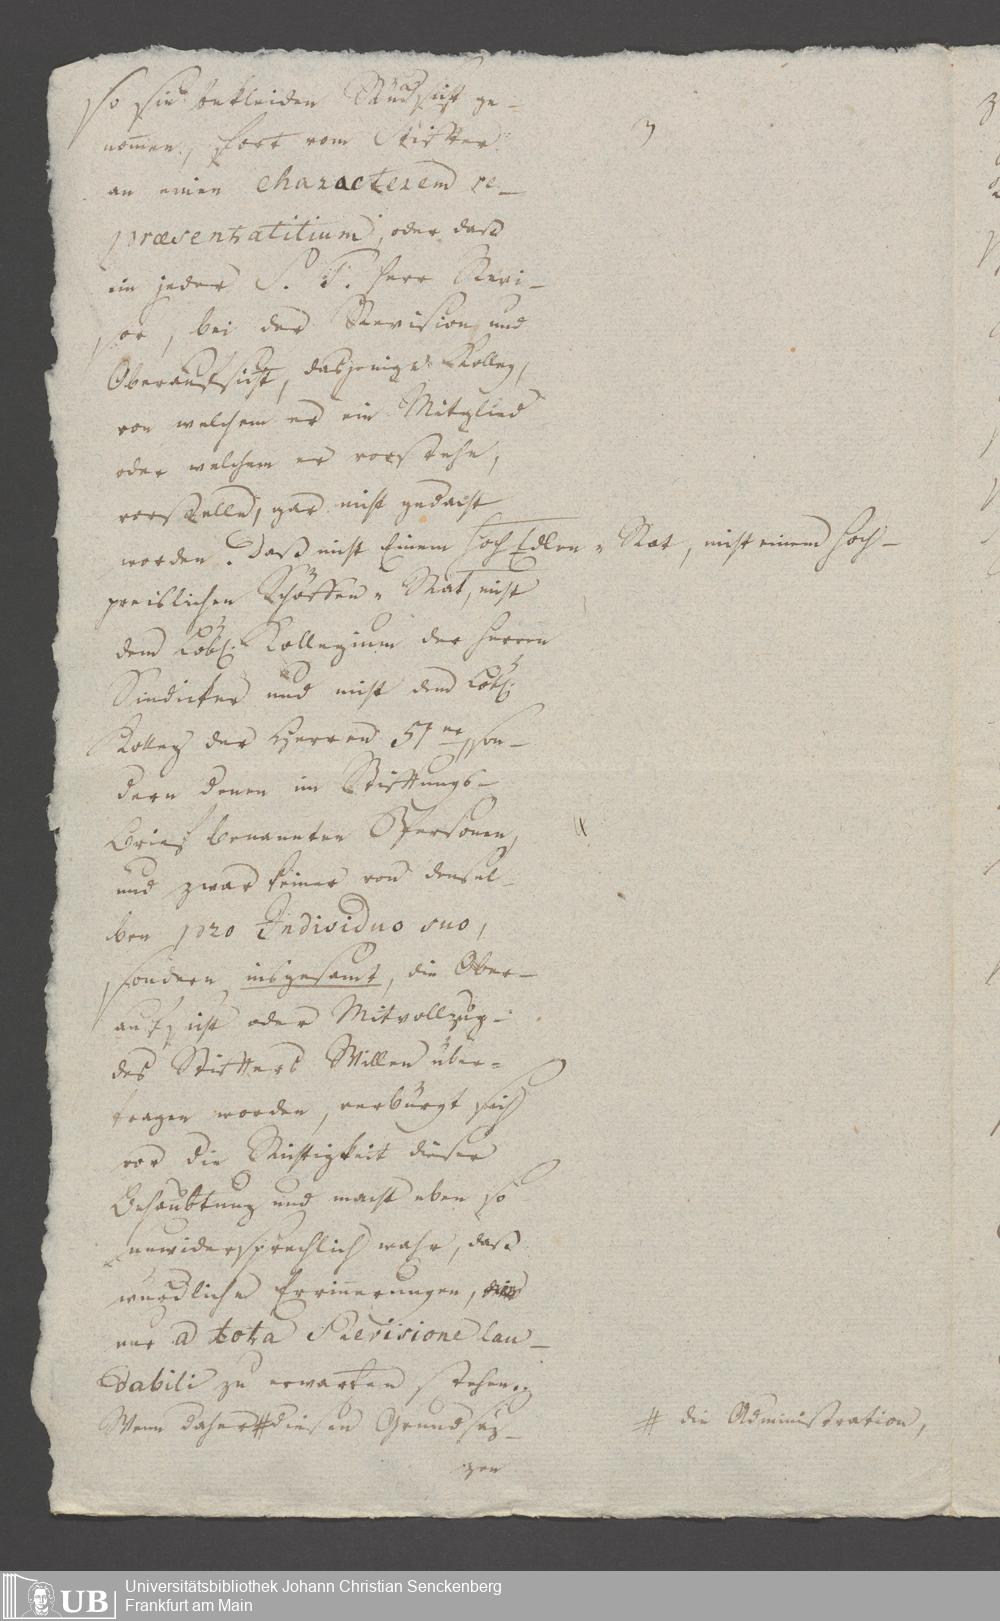 so sie bekleiden Rücksicht ge-
nommen, fort vom Stifter
an einen characterem re-
præsentatitium, oder daß
ein jeder S. T. Herr Revi-
sor, bei der Revision und
Oberaufsicht, dasjenige Kolleg,
von welchem er ein Mitglied
oder welchem er vorstehe,
vorstelle, gar nicht gedacht
worden? Daß nicht Einem HochEdlen Rat, nicht einem Hoch-
preislichen Schöffen Rat, nicht
dem Löbl. Kollegium der Herren
Sindicker und nicht dem Löbl.
Kolleg der Herren 51er, son-
dern denen im Stiftungs-
Brief benannten Personen,
und zwar keiner von densel-
ben pro Individuo suo,
sondern insgesamt, die Ober-
aufsicht oder Mitvollzug
des Stifters Willen über-
tragen worden, verbürgt sich
vor die Richtigkeit dieser
Behaubtung und macht eben so
unwidersprechlich wahr, daß
Errinnerungen,
nur a tota Revisione lau-
dabili zu erwarten stehen.
Wenn daher # diesen Grundsäz-
zen
# die Administration,
Universitätsbibliothek Johann Christian Senckenberg
Frankfurt am Main
UB